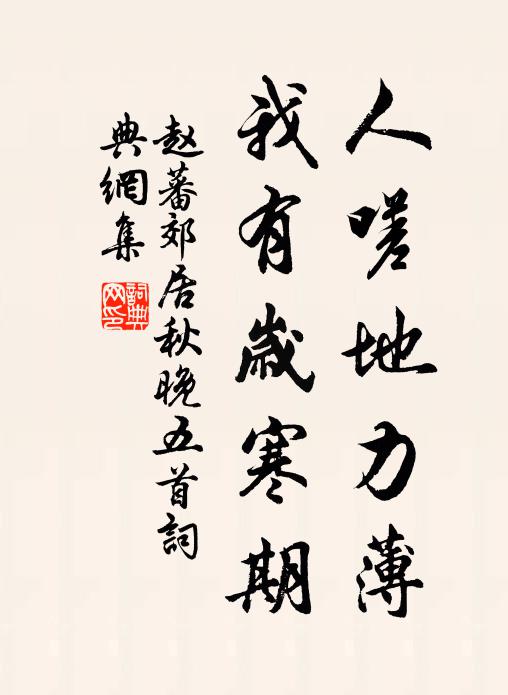 人嗟地力薄
我有歲寒期
赵蕃郊居秋晚五首詞
典網集
詞典
网印